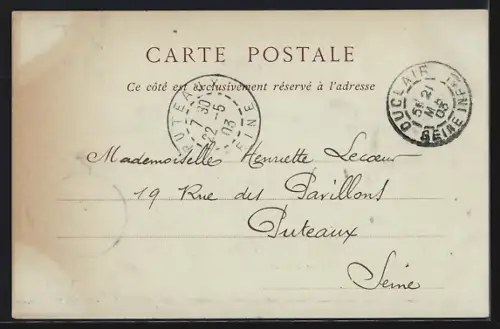 CARTE POSTALE
Ce côté est exclusivement réservé à l'adresse
PUTEAUX
7 30
22 -5
03
SEINE
DUCLAIR
21
MAI
03
SEINE INFRE
Mademoiselle Henriette Lecœur
19 Rue des Pavillons
Puteaux
Seine